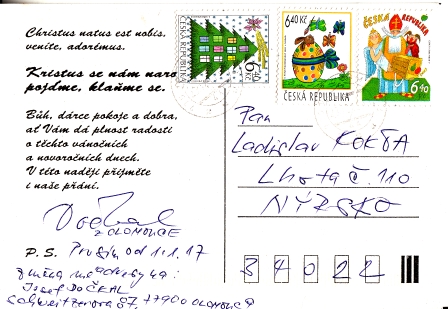 Christus natus est nobis,
venite, adorémus.
Kristus se nám naro
pojďme, klaňme se.
Bůh, dárce pokoje a dobra,
ať Vám dá plnost radosti
o těchto vánočních
a novoročních dnech.
V této naději přijměte
i naše přání.
Dočkal
z OLOMOUCE
P. S. Prosím od 1.1.17
změna mé adresy na:
Josef DOČKAL
Schweitzerova 87, 77900 OLOMOUC 9
ČESKÁ REPUBLIKA
6,40 Kč
6,40 Kč
ČESKÁ REPUBLIKA
ČESKÁ REPUBLIKA
6,40
Pan
Ladislav
Lhota č. 110
NÝRSKO
34022